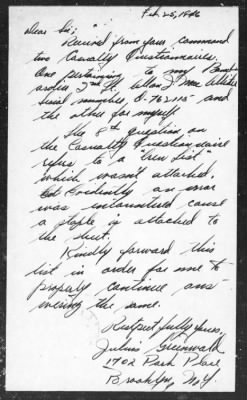 Feb 25, 1946
Dear Sir;
Received from your command
two Casualty Questionnaires.
One pertaining to my Bomb-
ardier 2nd Lt. Allan
Serial number, 0-762115 and
the other for myself.
The 8th question on
the Casualty Questionnaire
refers to a "Crew List"
which wasn't attached.
Evidently an error
was encountered cause
a staple is attached to
the sheet.
Kindly forward this
list in order for me to
properly continue ans-
wering the same.
Respectfully yours,
Julius Greenwald
1702 Park Place
Brooklyn, N.Y.